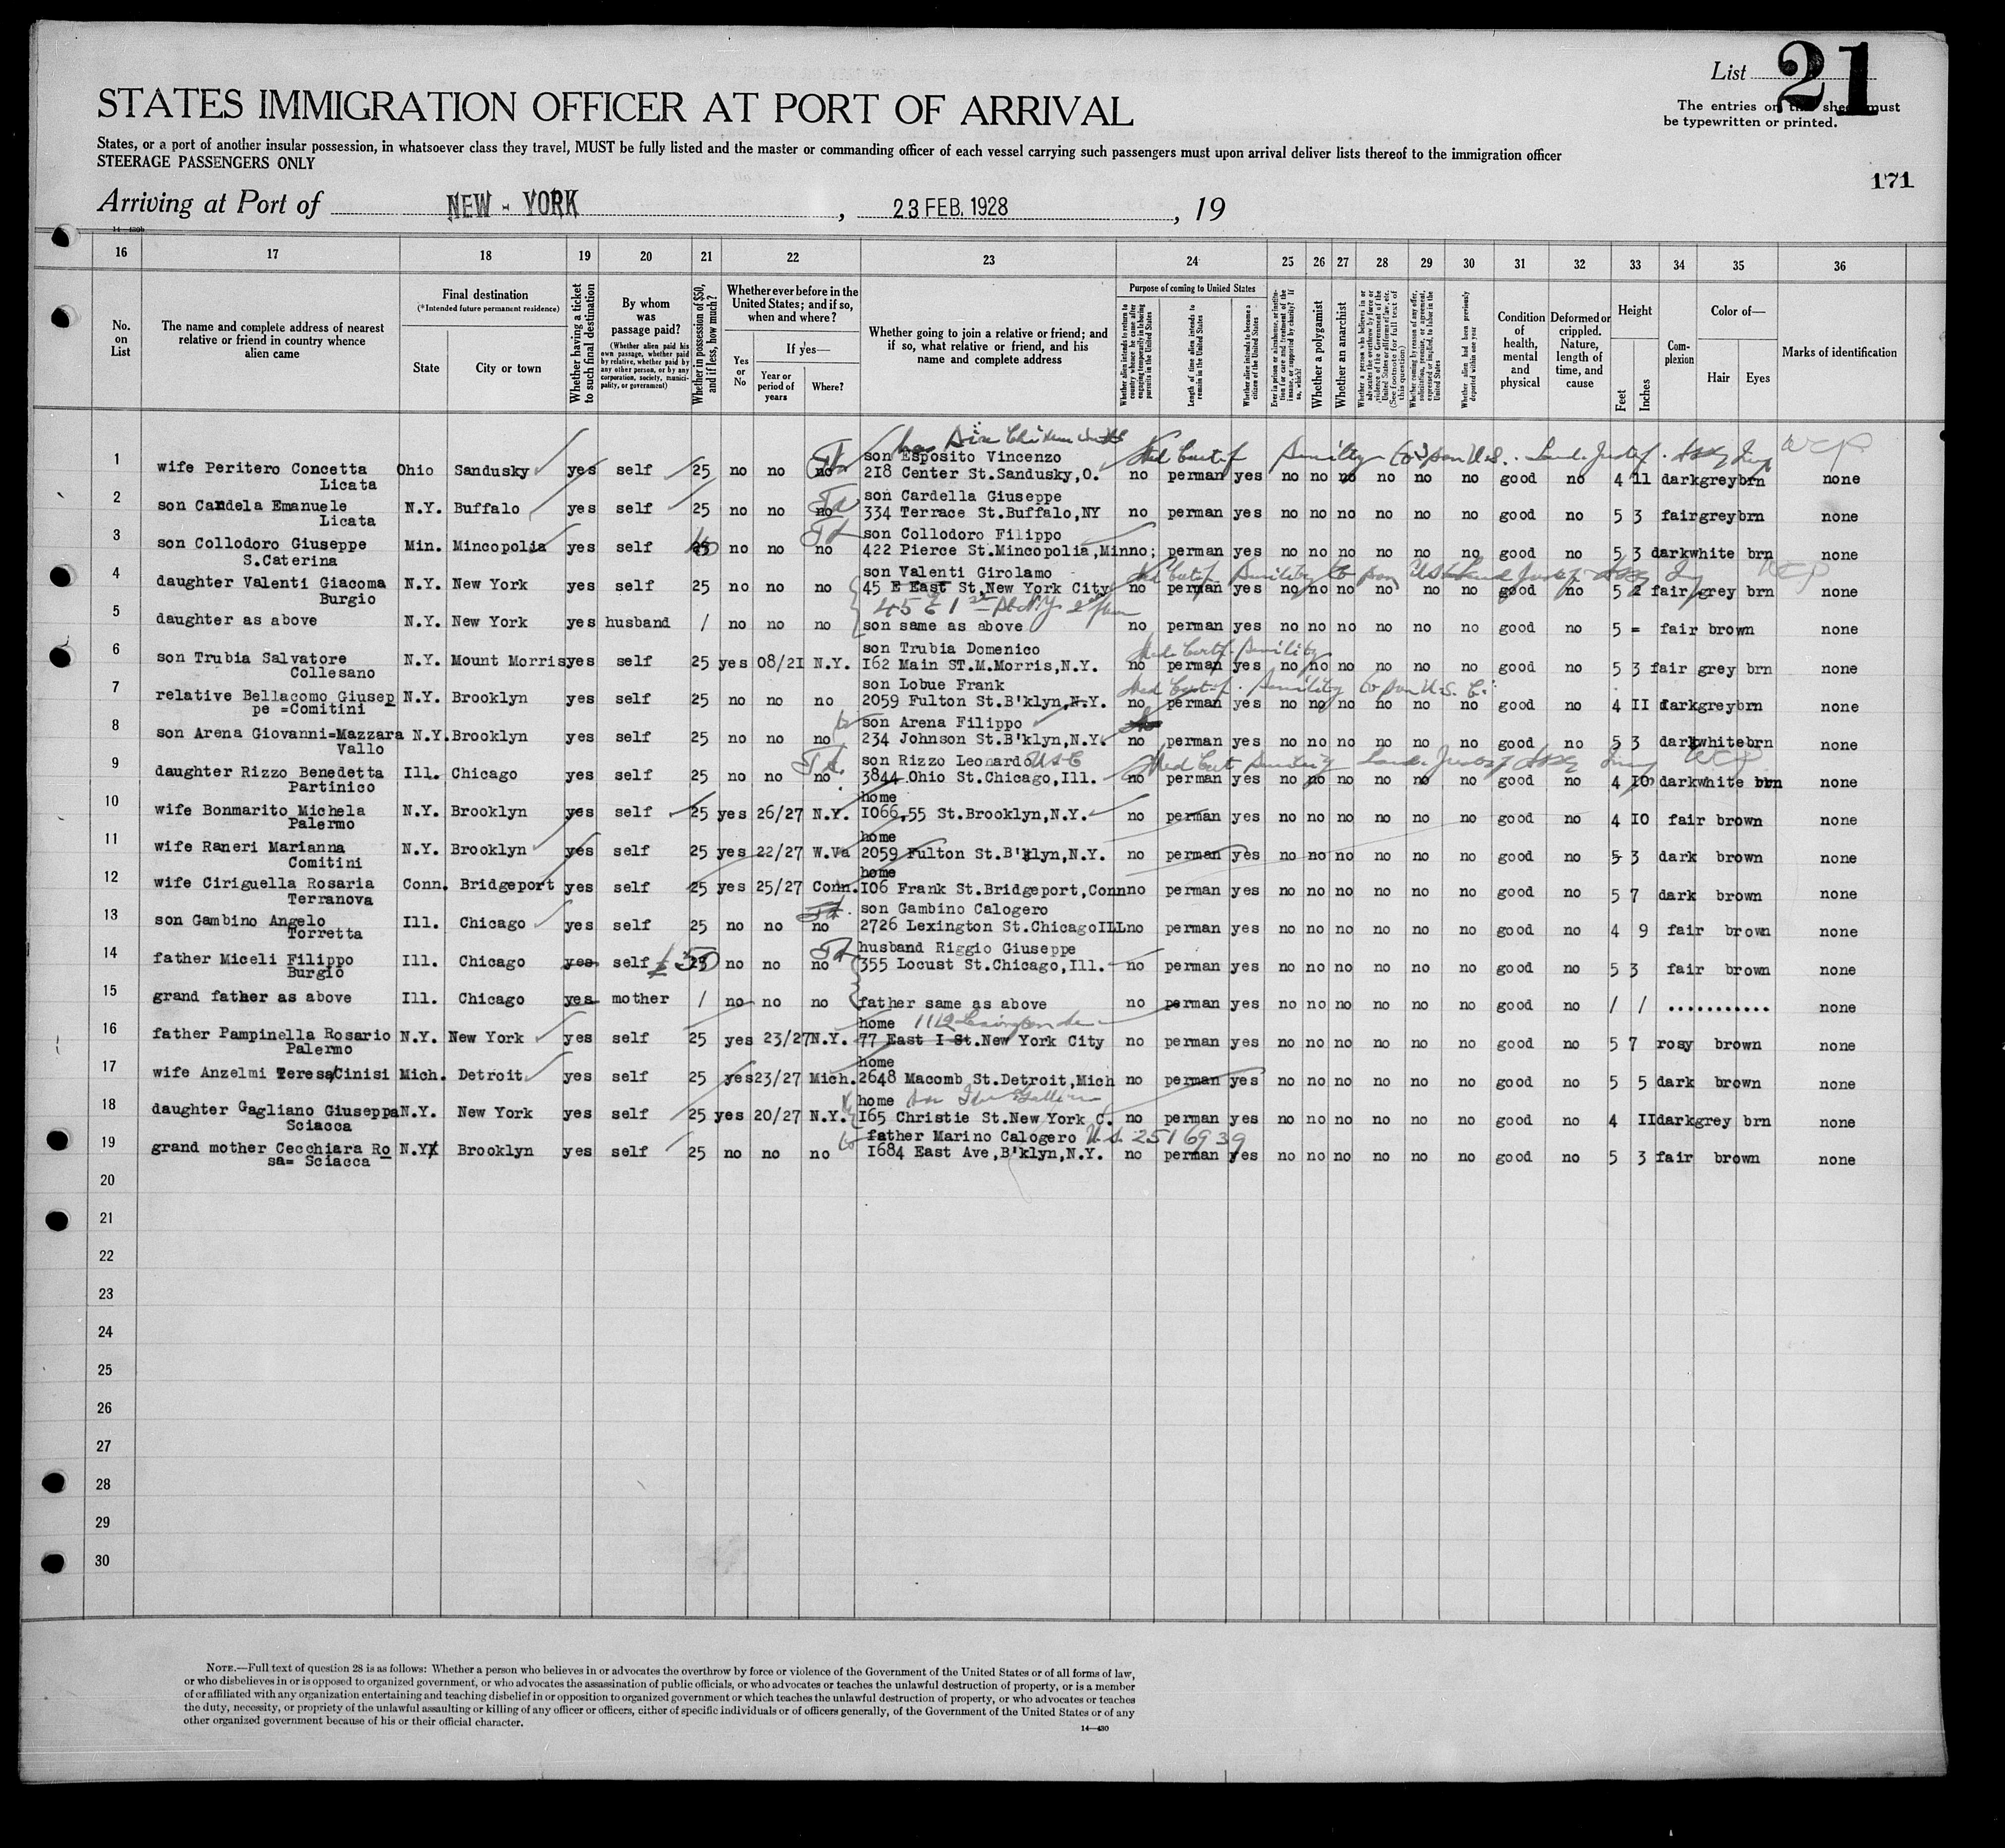 List 21
STATES IMMIGRATION OFFICER AT PORT OF ARRIVAL
The entries on this sheet must
be typewritten or printed.
States, or a port of another insular possession, in whatsoever class they travel, MUST be fully listed and the master or commanding officer of each vessel carrying such passengers must upon arrival deliver lists thereof to the immigration officer
STEERAGE PASSENGERS ONLY
171
Arriving at Port of NEW - YORK , 23 FEB. 1928 , 19
16 17 18 19 20 21 22 23 24 25 26 27 28 29 30 31 32 33 34 35 36
No. on List
The name and complete address of nearest relative or friend in country whence alien came
Final destination
(*Intended future permanent residence)
State
City or town
Whether having a ticket to such final destination
By whom was passage paid?
(Whether alien paid his own passage, whether paid by relative, whether paid by any other person, or by any corporation, society, municipality, or government)
Whether in possession of $50, and if less, how much?
Whether ever before in the United States; and if so, when and where?
Yes or No
If yes—
Year or period of years
Where?
Whether going to join a relative or friend; and if so, what relative or friend, and his name and complete address
Purpose of coming to United States
Length of time alien intends to remain in the United States
Whether alien intends to become a citizen of the United States
Whether a polygamist
Whether an anarchist
Whether alien had been previously deported within one year
Condition of health, mental and physical
Deformed or crippled. Nature, length of time, and cause
Height
Feet
Inches
Complexion
Color of—
Hair
Eyes
Marks of identification
1 wife Peritero Concetta Ohio Sandusky yes self 25 no no no son Esposito Vincenzo
Licata 218 Center St.Sandusky,O. no perman yes no no no no no no good no 4 11 dark grey brn none
2 son Cardela Emanuele N.Y. Buffalo yes self 25 no no no son Cardella Giuseppe
Licata 334 Terrace St.Buffalo,NY no perman yes no no no no no no good no 5 3 fair grey brn none
3 son Collodoro Giuseppe Min. Mincopolia yes self no no no son Collodoro Filippo
S.Caterina 422 Pierce St.Mincopolia,Minno; perman yes no no no no no no good no 5 3 dark white brn none
4 daughter Valenti Giacoma N.Y. New York yes self 25 no no no son Valenti Girolamo
Burgio 45 E East St,New York City no perman yes no no no no no no good no 5 2 fair grey brn none
5 daughter as above N.Y. New York yes husband / no no no son same as above no perman yes no no no no no no good no 5 = fair brown none
6 son Trubia Salvatore N.Y. Mount Morris yes self 25 yes 08/21 N.Y. son Trubia Domenico
Collesano 162 Main ST.M.Morris,N.Y. no perman yes no no no no no no good no 5 3 fair grey brn none
7 relative Bellacomo Giusep N.Y. Brooklyn yes self 25 no no no son Lobue Frank
pe =Comitini 2059 Fulton St.B'klyn,N.Y. no perman yes no no no no no no good no 4 II dark grey brn none
8 son Arena Giovanni=Mazzara N.Y. Brooklyn yes self 25 no no no son Arena Filippo
Vallo 234 Johnson St.B'klyn,N.Y. no perman yes no no no no no no good no 5 3 dark white brn none
9 daughter Rizzo Benedetta Ill. Chicago yes self 25 no no no son Rizzo Leonardo USC
Partinico 3844 Ohio St.Chicago,Ill. no perman yes no no no no no no good no 4 IO dark white brn none
10 wife Bonmarito Michela N.Y. Brooklyn yes self 25 yes 26/27 N.Y. home
Palermo 1066,55 St.Brooklyn,N.Y. no perman yes no no no no no no good no 4 IO fair brown none
11 wife Raneri Marianna N.Y. Brooklyn yes self 25 yes 22/27 W.Va home
Comitini 2059 Fulton St.B'klyn,N.Y. no perman yes no no no no no no good no 5 3 dark brown none
12 wife Ciriguella Rosaria Conn. Bridgeport yes self 25 yes 25/27 Conn. home
Terranova 106 Frank St.Bridgeport,Conn no perman yes no no no no no no good no 5 7 dark brown none
13 son Gambino Angelo Ill. Chicago yes self 25 no no no son Gambino Calogero
Torretta 2726 Lexington St.Chicago ILL no perman yes no no no no no no good no 4 9 fair brown none
14 father Miceli Filippo Ill. Chicago yes self 50 no no no husband Riggio Giuseppe
Burgio 355 Locust St.Chicago,Ill. no perman yes no no no no no no good no 5 3 fair brown none
15 grand father as above Ill. Chicago yes mother / no no no father same as above no perman yes no no no no no no good no / / ........... none
16 father Pampinella Rosario N.Y. New York yes self 25 yes 23/27 N.Y. home
Palermo 77 East I St.New York City no perman yes no no no no no no good no 5 7 rosy brown none
17 wife Anzelmi Teresa/Cinisi Mich. Detroit yes self 25 yes 23/27 Mich. home
2648 Macomb St.Detroit,Mich no perman yes no no no no no no good no 5 5 dark brown none
18 daughter Gagliano Giuseppa N.Y. New York yes self 25 yes 20/27 N.Y. home
Sciacca 165 Christie St.New York C. no perman yes no no no no no no good no 4 II dark grey brn none
19 grand mother Cecchiara Ro N.Y. Brooklyn yes self 25 no no no father Marino Calogero U.S. 2516939
sa= Sciacca 1684 East Ave,B'klyn,N.Y. no perman yes no no no no no no good no 5 3 fair brown none
20
21
22
23
24
25
26
27
28
29
30
NOTE.—Full text of question 28 is as follows: Whether a person who believes in or advocates the overthrow by force or violence of the Government of the United States or of all forms of law,
or who disbelieves in or is opposed to organized government, or who advocates the assassination of public officials, or who advocates or teaches the unlawful destruction of property, or is a member
of or affiliated with any organization entertaining and teaching disbelief in or opposition to organized government or which teaches the unlawful destruction of property, or who advocates or teaches
the duty, necessity, or propriety of the unlawful assaulting or killing of any officer or officers, either of specific individuals or of officers generally, of the Government of the United States or of any
other organized government because of his or their official character.
14—430